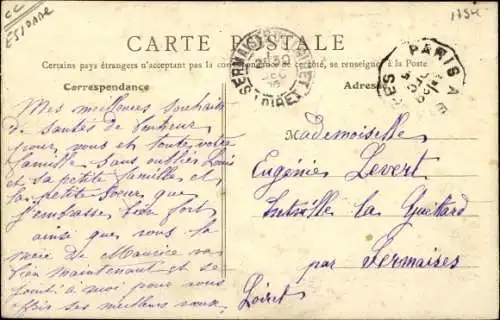 CC
ESPDADE
1754
CARTE POSTALE
Certains pays étrangers n'acceptant pas la correspondance de ce côté, se renseigner à la Poste
Correspondance
Adresse
SERMAISES-DU-LOIRET
LOIRET
PARIS A
Mes meilleurs souhaits
de santés de bonheur
pour vous et toute votre
famille sans oublier Louis
et sa petite famille et
ta petite soeur que
j'embrasse bien fort
ainsi que vous la
mère de Maurice va
bien maintenant et se
joint à moi pour vous
offrir ses meilleurs vœux.
Mademoiselle
Eugénie Levert
Intville la Guettard
par Sermaises
Loiret